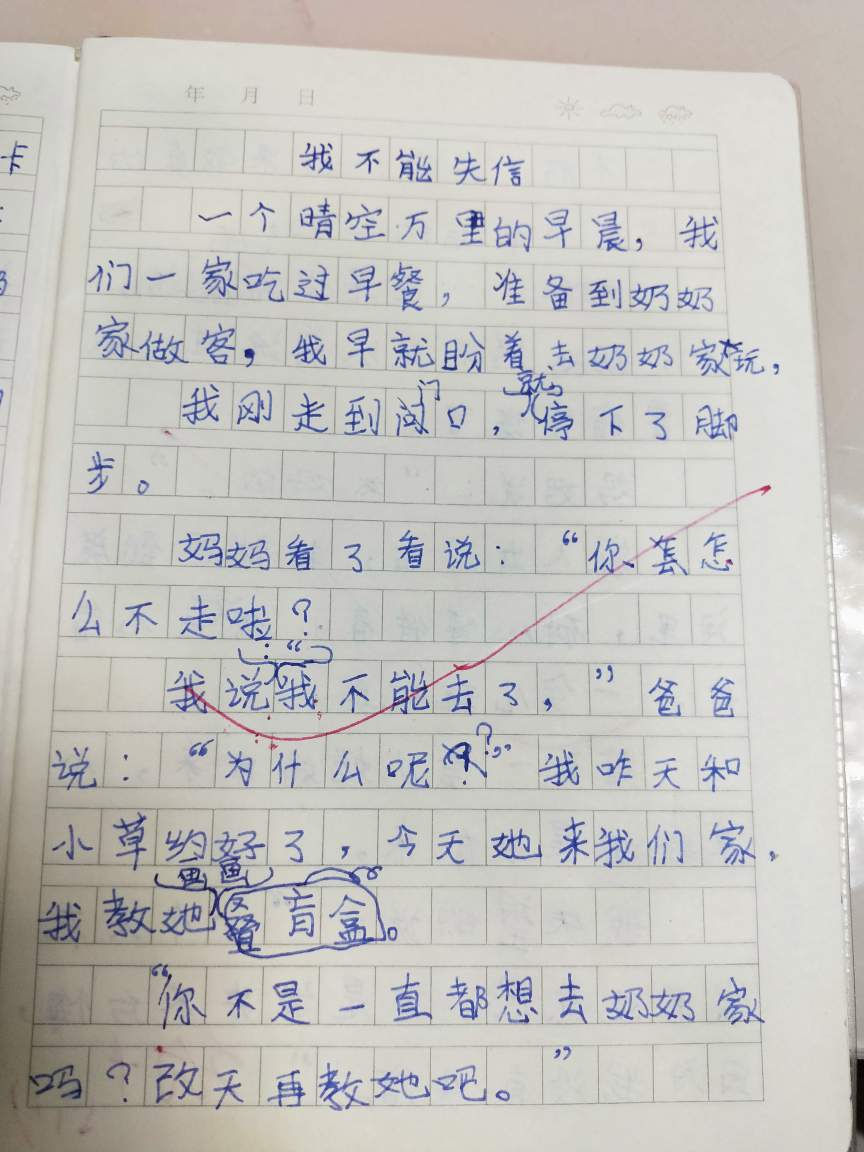 年 月 日
我不能失信
一个晴空万里的早晨，我
们一家吃过早餐，准备到奶奶
家做客，我早就盼着去奶奶家玩，
我刚走到门口，就停下了脚
步。
妈妈看了看说：“你怎
么不走啦？
我说：“我不能去了，”爸爸
说：“为什么呢？”我昨天和
小草约好了，今天她来我们家，
我教她画画。
“你不是一直都想去奶奶家
吗？改天再教她吧。”
卡